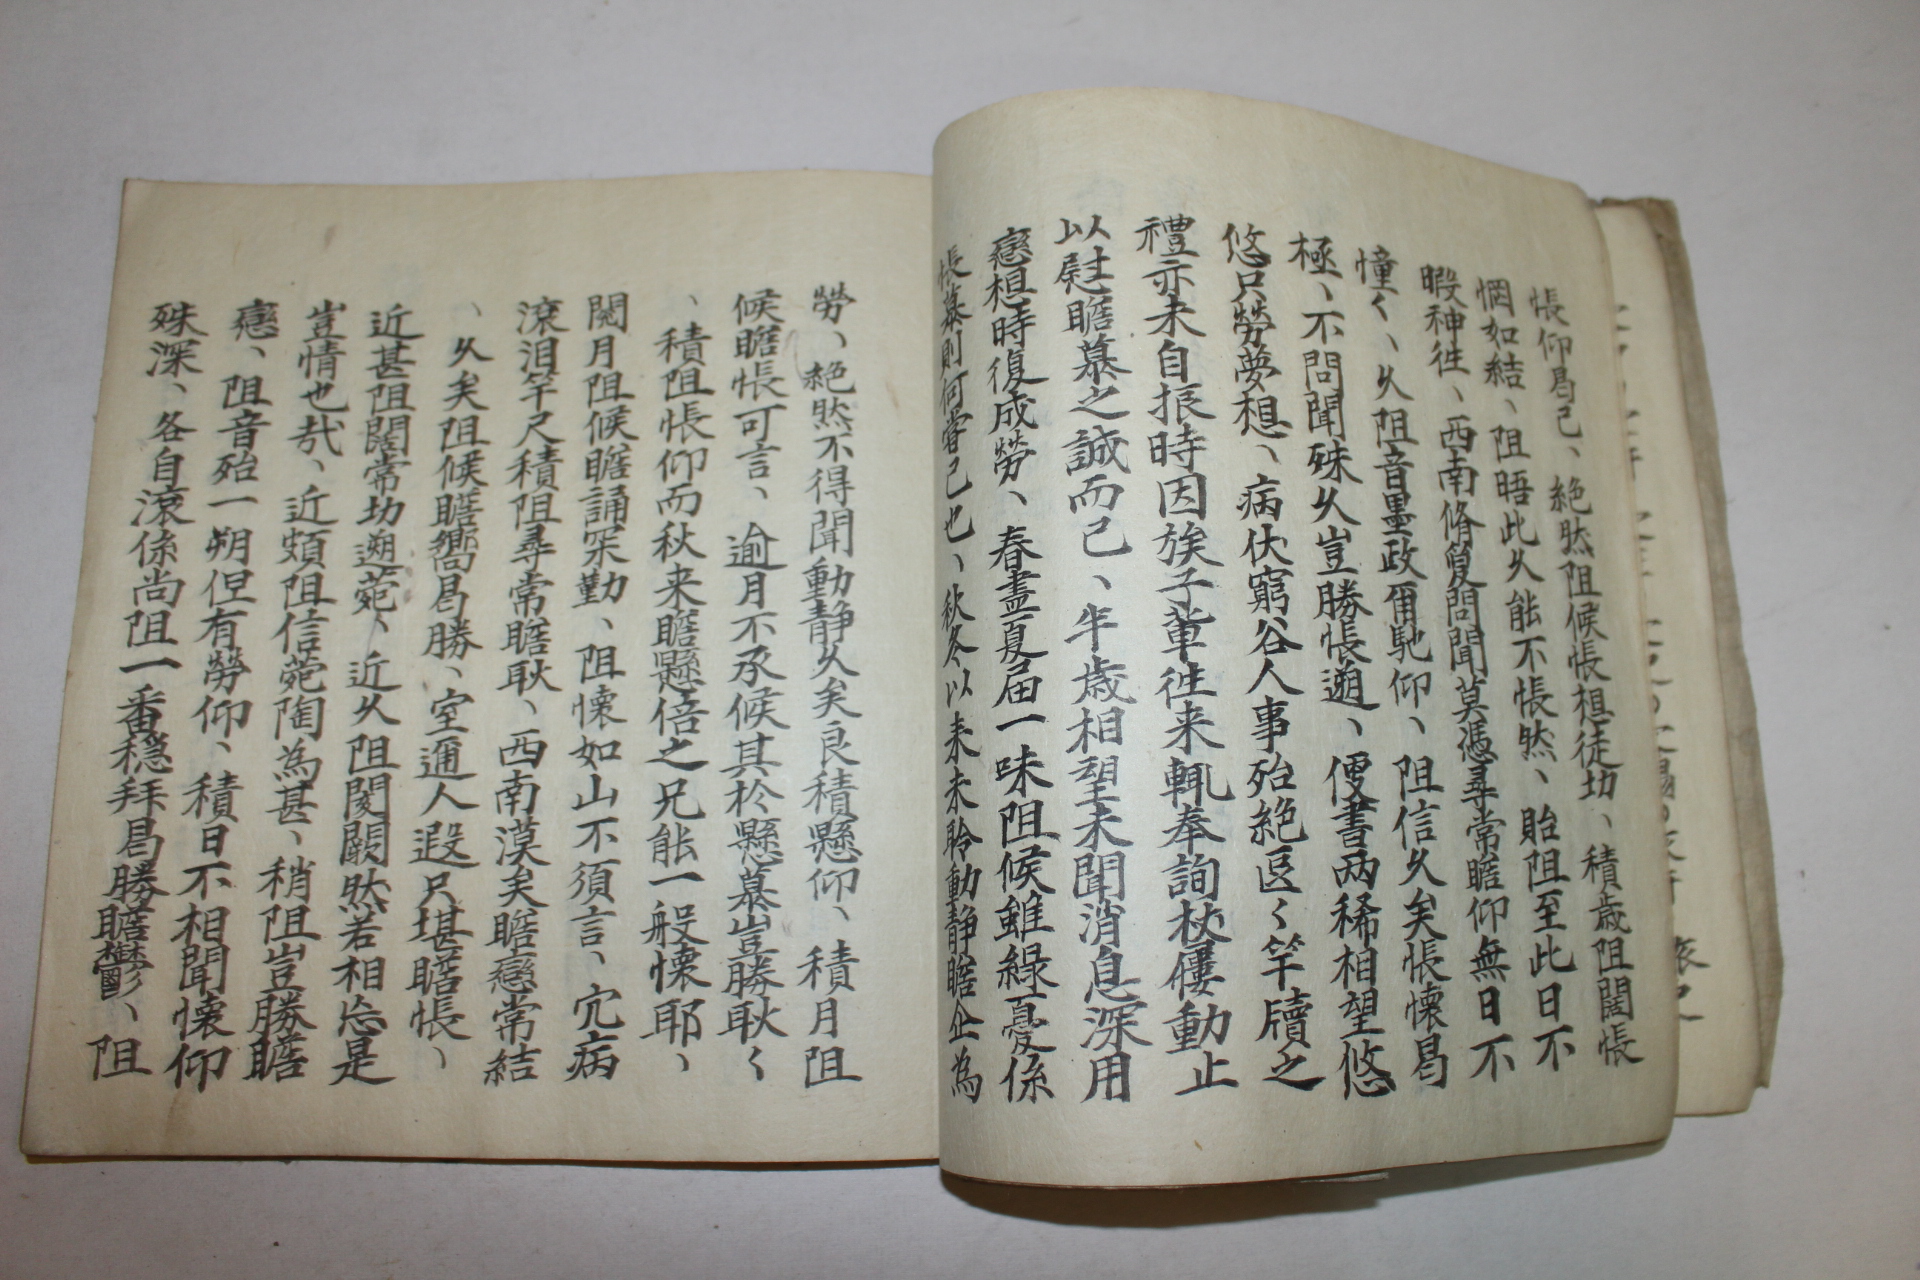 悵仰曷已、絶然阻候悵想徒切、積歲阻闊悵
惘如結、阻晤此久能不悵然、貽阻至此日不
暇神徃、西南脩敻問聞莫憑尋常瞻仰無日不
憧〻、久阻音墨政甭馳仰、阻信久矣悵懷曷
極、不問聞殊久豈勝悵遡、便書兩稀相望悠
悠只勞夢想、病伏窮谷人事殆絶區〻竿牘之
禮亦未自振時因族子軰徃来輒奉詢杖屨動止
以慰瞻慕之誠而已、半歲相望未聞消息深用
戀想時復成勞、春盡夏屆一味阻候雖緣憂係
悵慕則何嘗已也、秋冬以来未聆動静瞻企為
勞、絶然不得聞動静久矣良積懸仰、積月阻
候瞻悵可言、逾月不承候其於懸慕豈勝耿〻
、積阻悵仰而秋来瞻懸倍之兄能一般懷耶、
閱月阻候瞻誦罙勤、阻懷如山不須言、宂病
滾汨竿尺積阻尋常瞻耿、西南漠矣瞻戀常結
、久矣阻候瞻嚮曷勝、室邇人遐只堪瞻悵、
近甚阻闊常切遡菀、近久阻閡闕然若相忘是
豈情也㦲、近頗阻信菀陶為甚、稍阻豈勝瞻
戀、阻音殆一朔但有勞仰、積日不相聞懷仰
殊深、各自滾係尚阻一番穩拜曷勝瞻鬱、阻